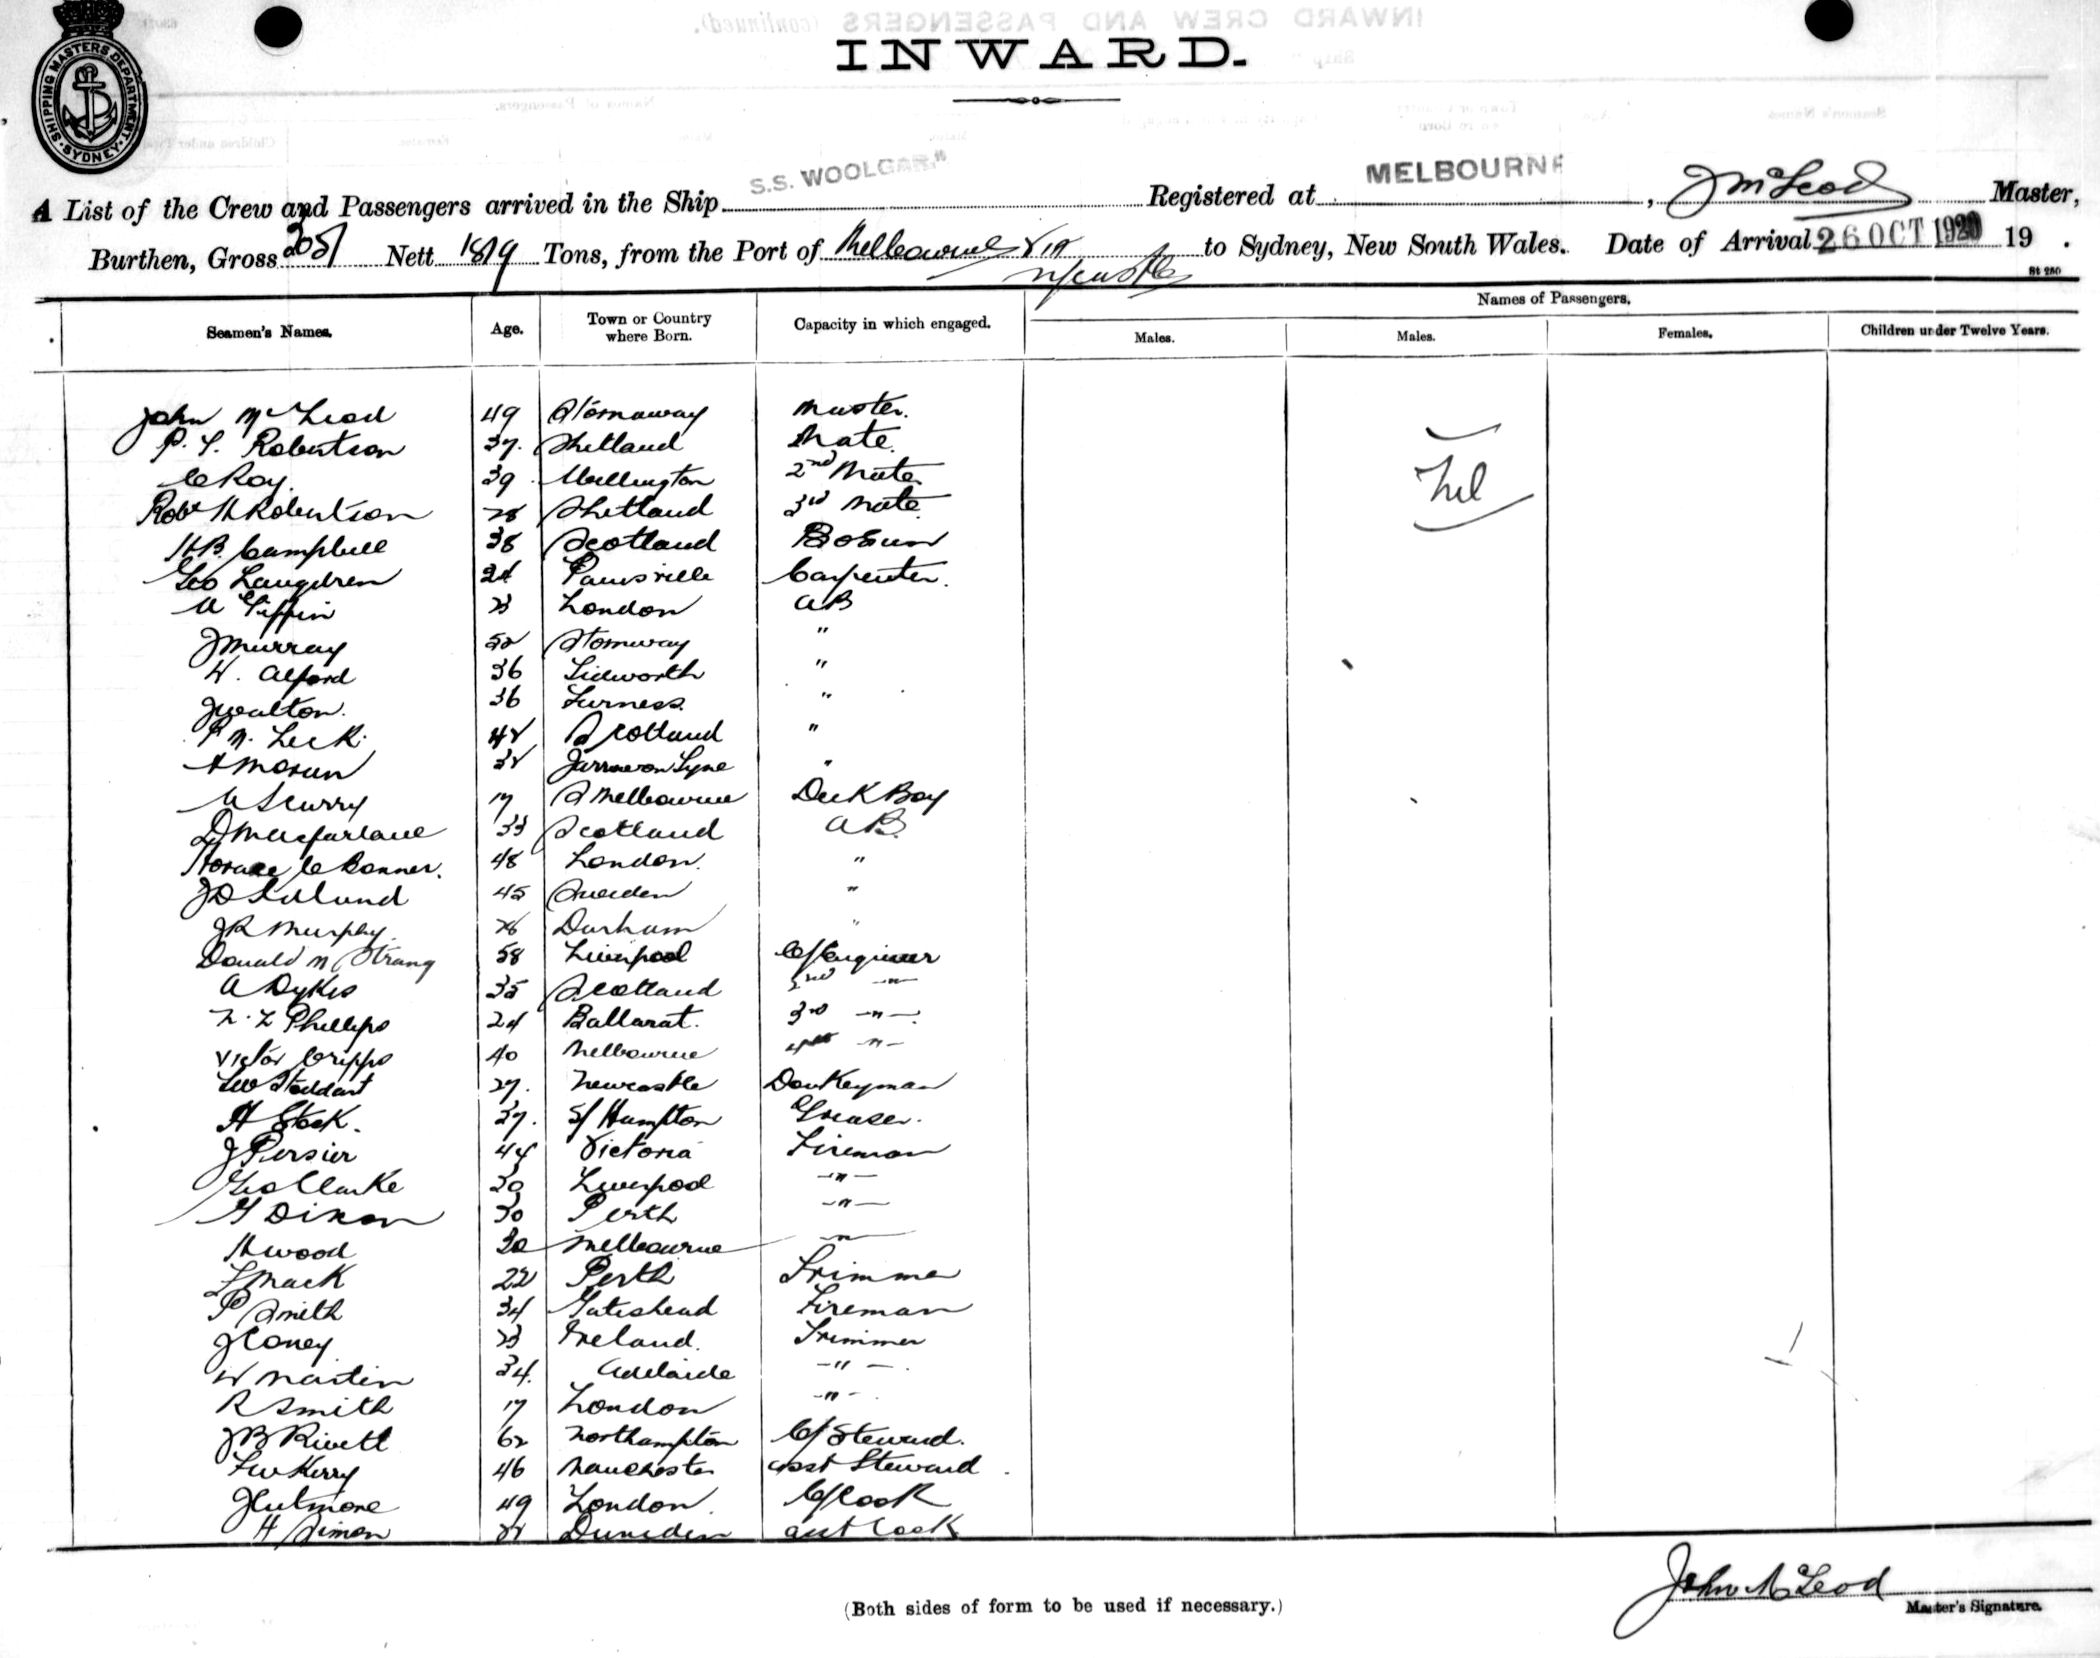 SHIPPING MASTERS DEPARTMENT
SYDNEY
INWARD.
A List of the Crew and Passengers arrived in the Ship S.S. WOOLGAR." Registered at MELBOURNE, J McLeod Master,
Burthen, Gross 3051 Nett 1819 Tons, from the Port of Melbourne via N/castle to Sydney, New South Wales. Date of Arrival 26 OCT 1920 19 .
St 280
Seamen's Names. Age. Town or Country where Born. Capacity in which engaged. Names of Passengers.
Males. Males. Females. Children under Twelve Years.
John McLeod 49 Stornaway Master.
P. T. Robertson 37. Shetland Mate.
C Roy. 39 Wellington 2nd Mate
Nil
Robt H Robertson 28 Shetland 3rd Mate
H.B. Campbell 38 Scotland Bosun
Geo 24 Carpenter.
A Tiffin 23 London AB
J Murray 52 Stornway "
H. Alford 36 "
J Walton. 36 Furness "
Leek. 42 Scotland "
A Moran 32 Jarrow on Tyne "
A Scurry 17 S Melbourne Deck Boy
D Macfarlane 33 Scotland AB.
Horace C Bonner. 48 London. "
45 Sweden "
J R Murphy. 28 Durham "
Donald M Strang 58 Liverpool C/Engineer
A Dykes 35 Scotland 2nd -"-
N. L Phillips 24 Ballarat. 3rd -"-.
Victor Cripps 40 Melbourne 4th -"-
Stoddart 27. Newcastle Donkeyman
H Stock. 37. S/Hampton Greaser.
J Persier 44 Victoria Fireman
Geo Clarke 30 Liverpool -"-
G Dixon 30 Perth -"-
H Wood 30 Melbourne -"-
F Mack 22 Perth Trimmer
P Smith 34 Gateshead Fireman
J Coney 23 Ireland. Trimmer
W Martin 34. Adelaide -"-.
R Smith 17 London -"-.
J B Rivett 62 Northampton C/Steward.
F W Kerry 46 Manchester Asst Steward
J Cutmore 49 London. C/Cook
H Simon 22 Dunedin Asst Cook
John McLeod
Master's Signature.
(Both sides of form to be used if necessary.)